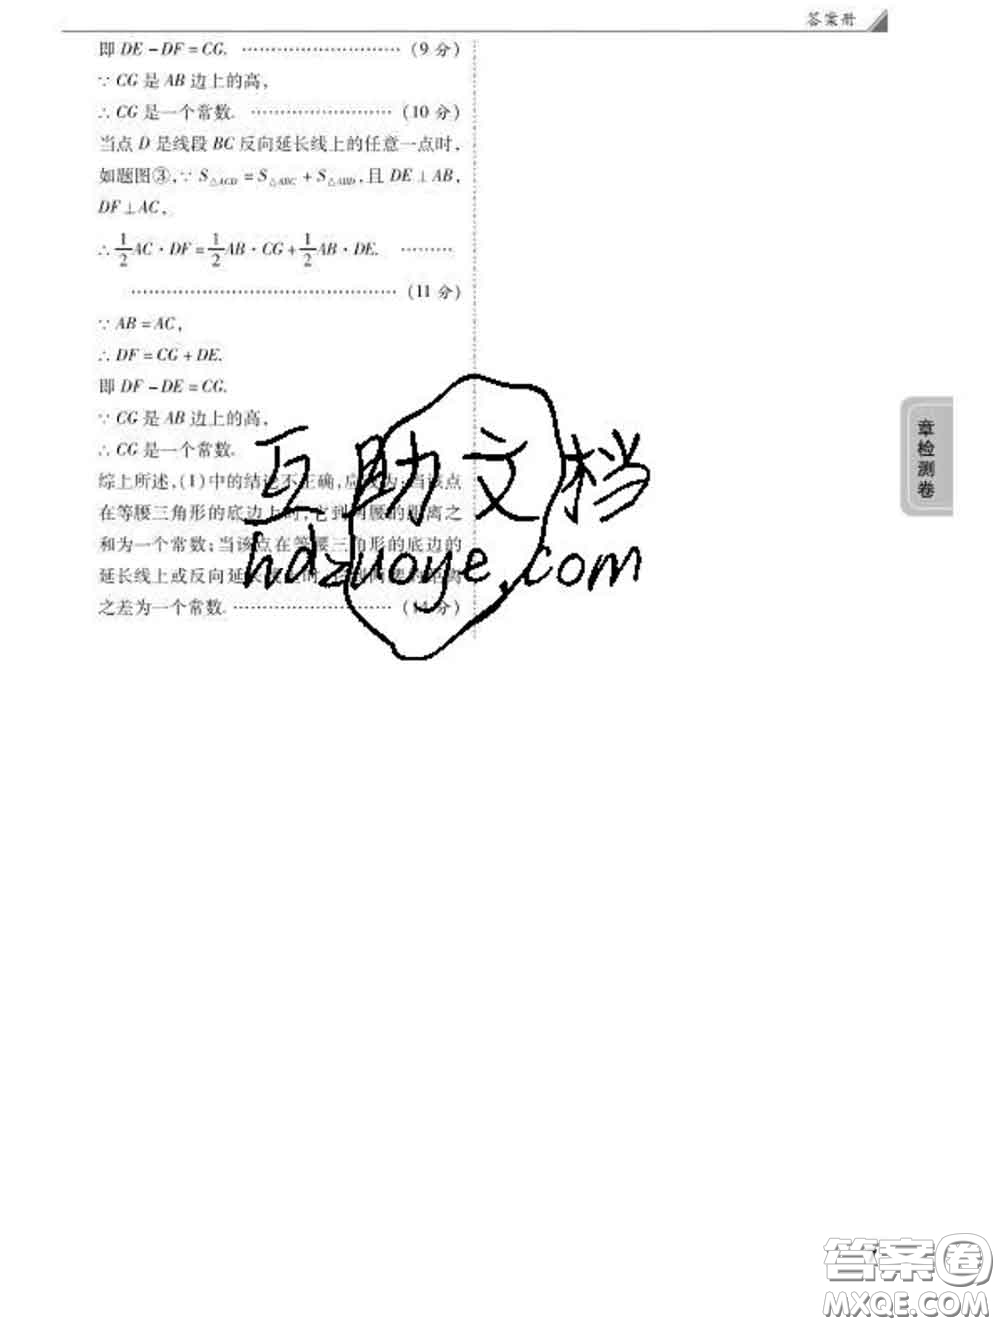 答案册
即 DE − DF = CG. ………………………… (9 分)
∵ CG 是 AB 边上的高,
∴ CG 是一个常数. ……………………… (10 分)
当点 D 是线段 BC 反向延长线上的任意一点时,
如题图③,∵ S△ACD = S△ABC + S△ABD,且 DE⊥AB,
DF⊥AC,
∴ 1/2 AC · DF = 1/2 AB · CG + 1/2 AB · DE. ………
……………………………………… (11 分)
∵ AB = AC,
∴ DF = CG + DE.
即 DF − DE = CG.
∵ CG 是 AB 边上的高,
∴ CG 是一个常数.
综上所述,(1)中的结论不正确,应改为:当该点
在等腰三角形的底边上时,它到两腰的距离之
和为一个常数;当该点在等腰三角形的底边的
延长线上或反向延长线上时,它到两腰的距离
之差为一个常数. ……………………… 分)
互助文档
hdzuoye.com
章检测卷
答案卷
MXQE.COM